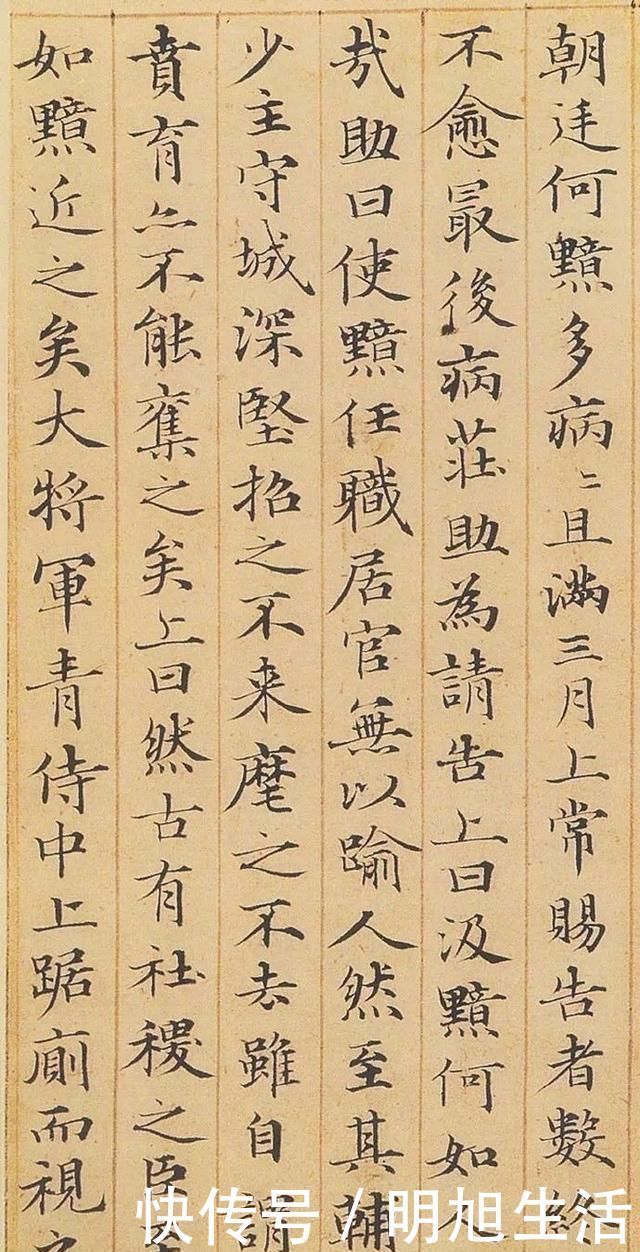 朝廷何黯多病〻且滿三月上常賜告者數終
不愈最後病莊助為請告上曰汲黯何如人
哉助曰使黯任職居官無以踰人然至其輔
少主守城深堅招之不来麾之不去雖自謂
賁育亦不能奪之矣上曰然古有社稷之臣
如黯近之矣大將軍青侍中上踞廁而視之
快传号 / 明旭生活